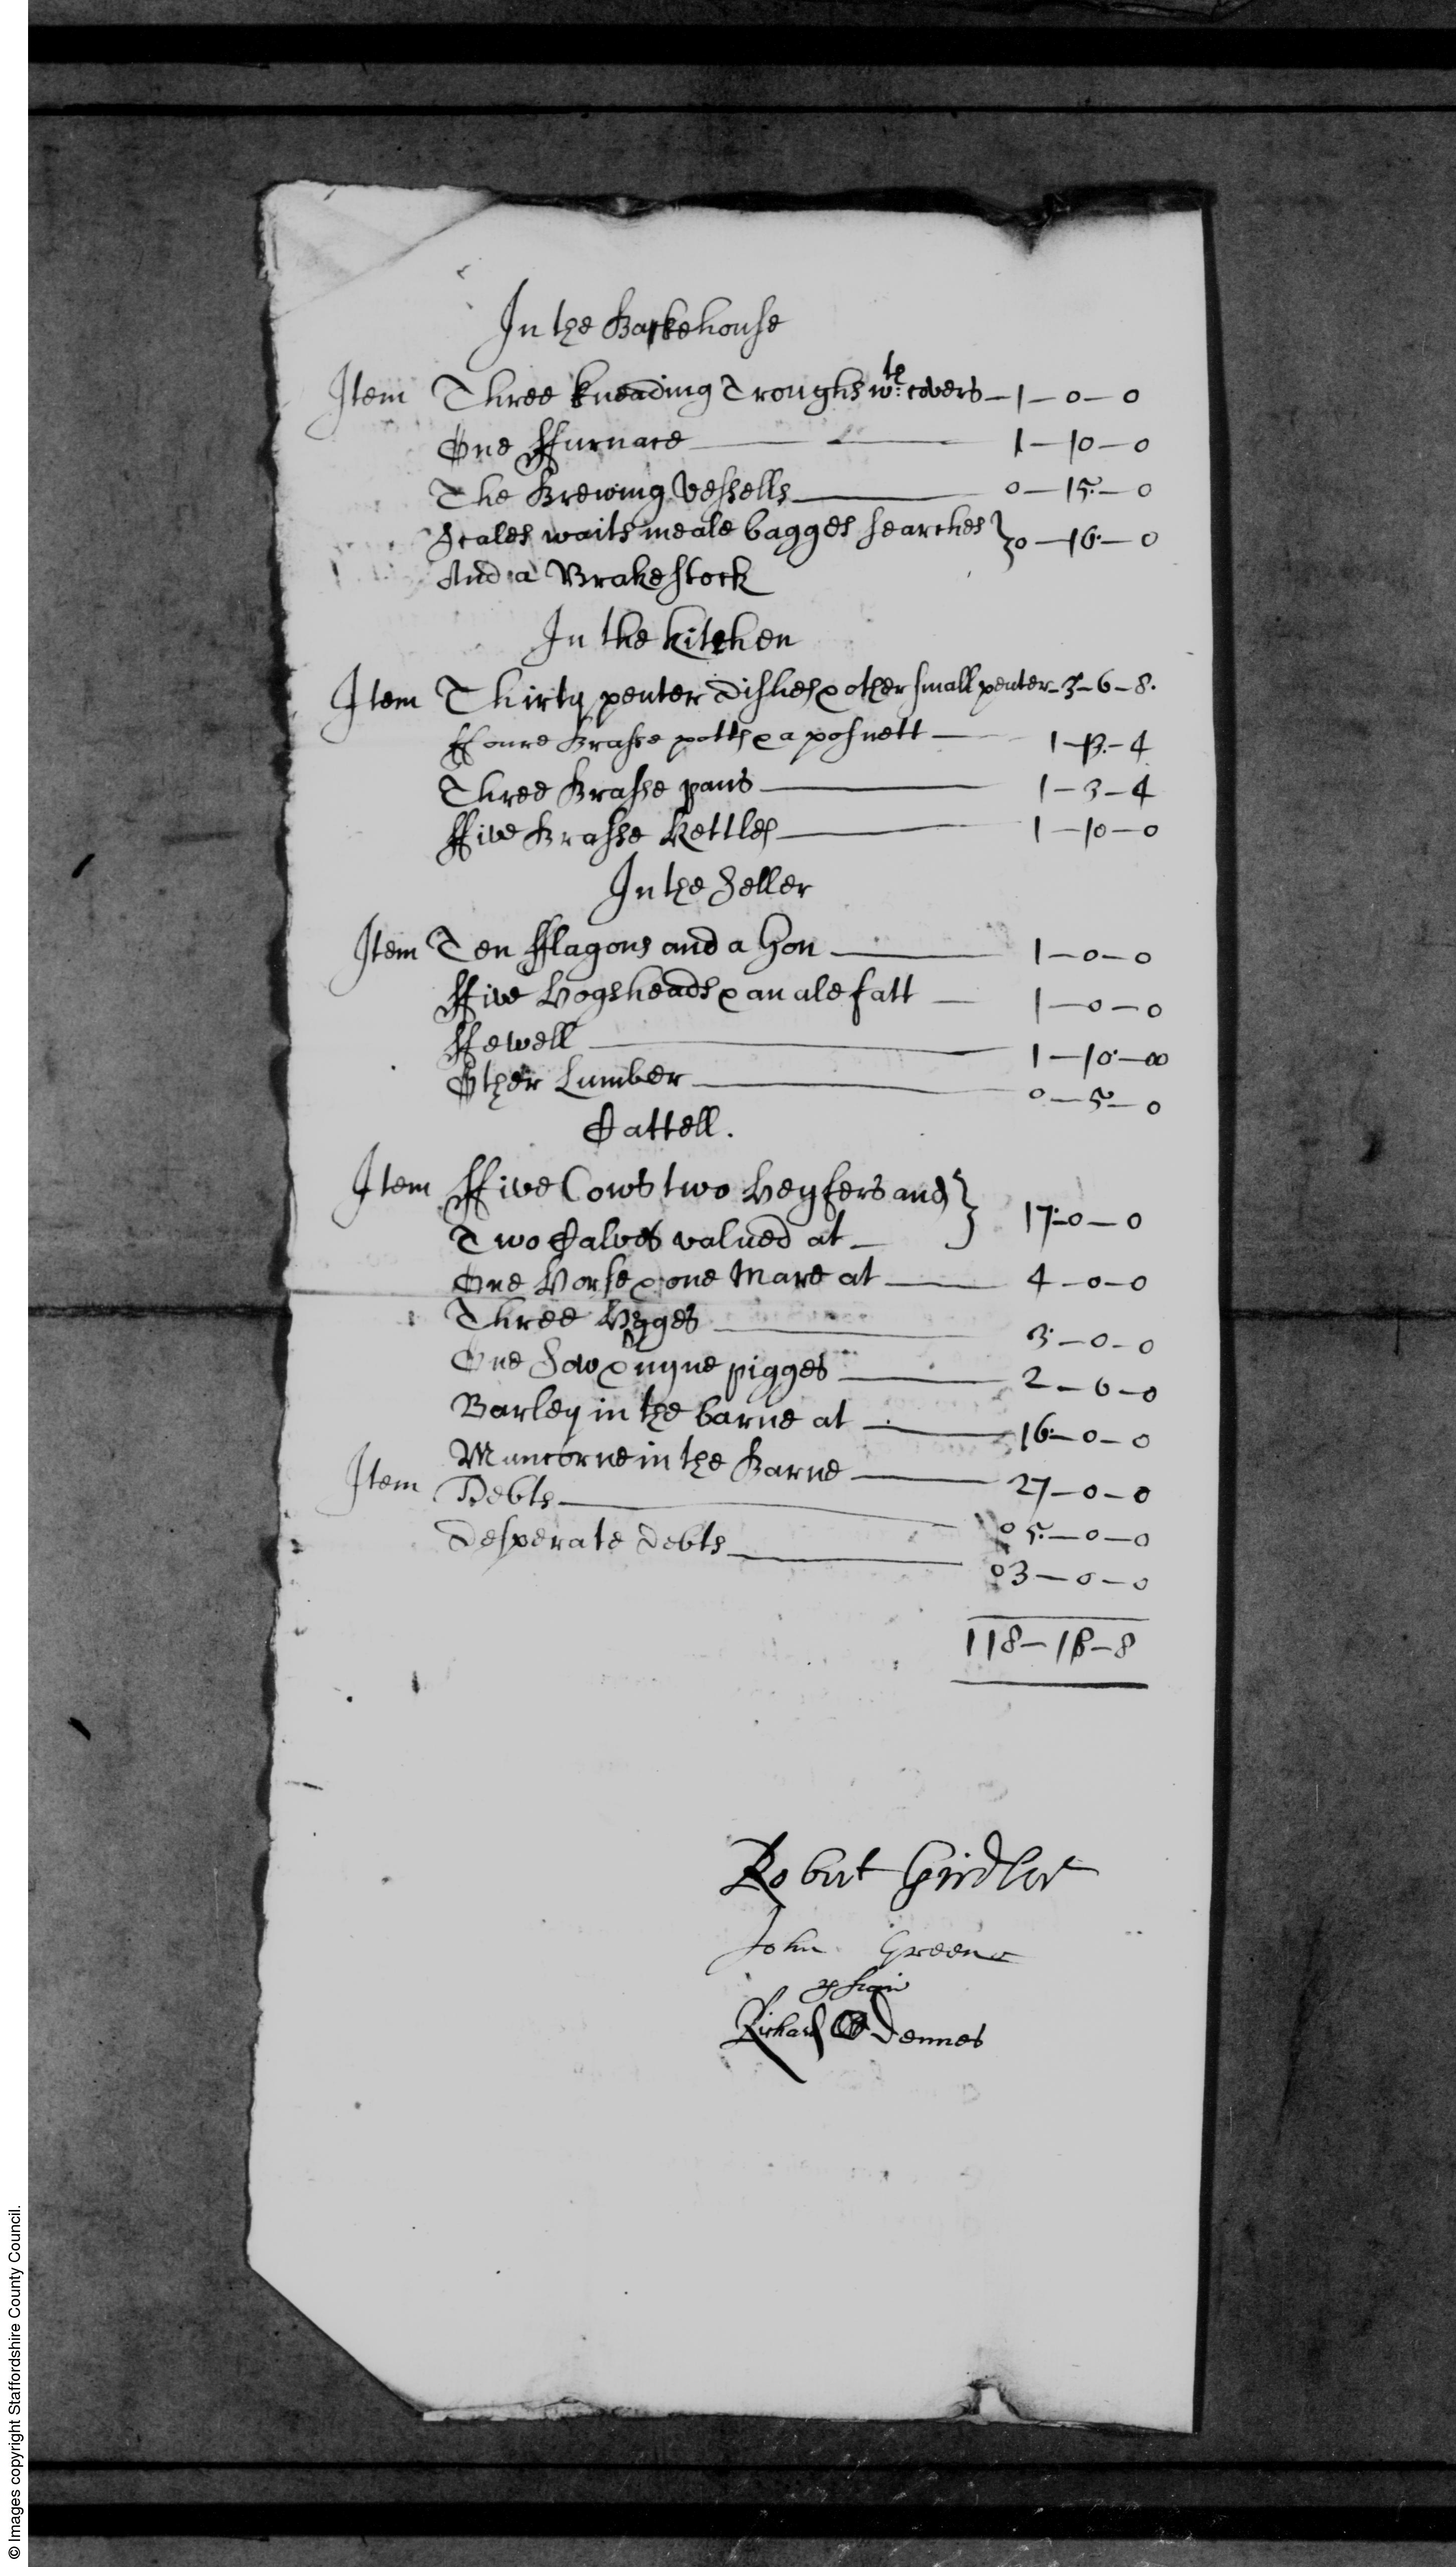 In the Backehouse
Item Three kneading Troughs wth: covers – 1 – 0 – 0
One ffurnace 1 – 10 – 0
The Brewing Vessells 0 – 15 – 0
Scales waits meale bagges searches } 0 – 16 – 0
And a Brake stock
In the kitchen
Item Thirty peuter dishes & other small peuter – 3 – 6 – 8.
ffoure Brasse potts & a posnett – 1 – 13 – 4
Three Brasse pans 1 – 3 – 4
ffive Brasse Kettles 1 – 10 – 0
In the Seller
Item Ten fflagons and a Gon 1 – 0 – 0
ffive Hogsheads & an ale fatt – 1 – 0 – 0
ffewell 1 – 10 – 00
Other Lumber 0 – 5 – 0
Cattell.
Item ffive Cows two Heyfers and }
Two Calves valued at – 17 – 0 – 0
One Horse & one Mare at 4 – 0 – 0
Three Hogges 3 – 0 – 0
One Sow & nyne pigges 2 – 0 – 0
Barley in the barne at 16 – 0 – 0
Muncorne in the Barne 27 – 0 – 0
Item Debts 05 – 0 – 0
Desperate debts 03 – 0 – 0
118 – 18 – 8
Robert Girdler
John Greene
Richard Dennes
© Images copyright Staffordshire County Council.